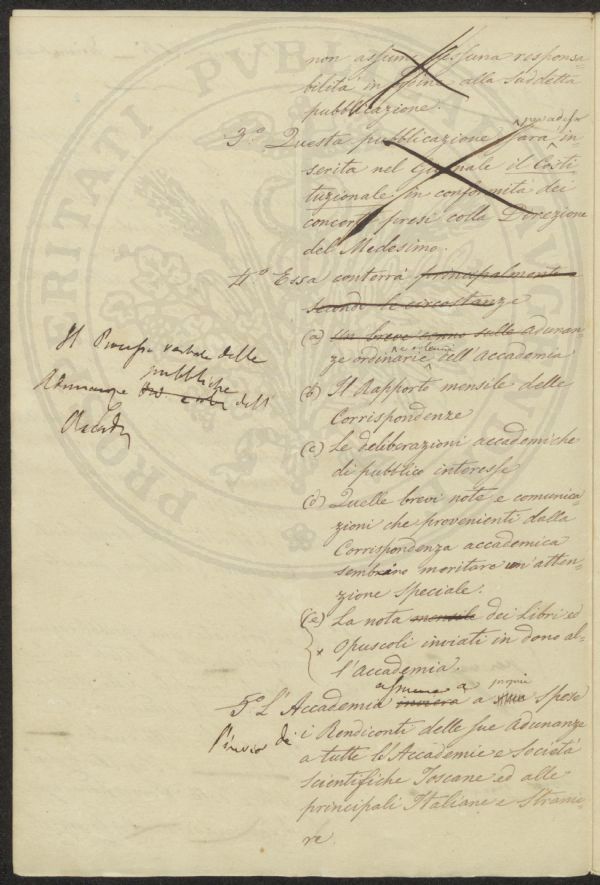 non assume nessuna responsa=
bilità in fine alla suddetta
pubblicazione.
3.° Questa pubblicazione sarà in=
serita nel Giornale il Costi=
tuzionale in conformità dei
concerti presi colla Direzione
del Medesimo.
4.° Essa conterrà principalmente
secondo le circostanze
(a) Un breve cenno sulle adunan=
ze ordinarie dell'Accademia
Il Processo verbale delle
pubbliche
Adunanze dell'
Accad
(b) Il Rapporto mensile delle
Corrispondenze
(c) Le deliberazioni accademiche
di pubblico interesse
(d) Quelle brevi note e comunica=
zioni che provenienti dalla
Corrispondenza accademica
sembrino meritare un'atten=
zione speciale.
(e) La nota mensile dei Libri ed
Opuscoli inviati in dono al=
l'Accademia.
assume a proprie
5.° L'Accademia invierà a spese
l'invio de' i Rendiconti delle sue adunanze
a tutte le Accademie e Società
Scientifiche Toscane ed alle
principali Italiane e Stranie=
re
PROSPERITATI PVBLICAE AVG